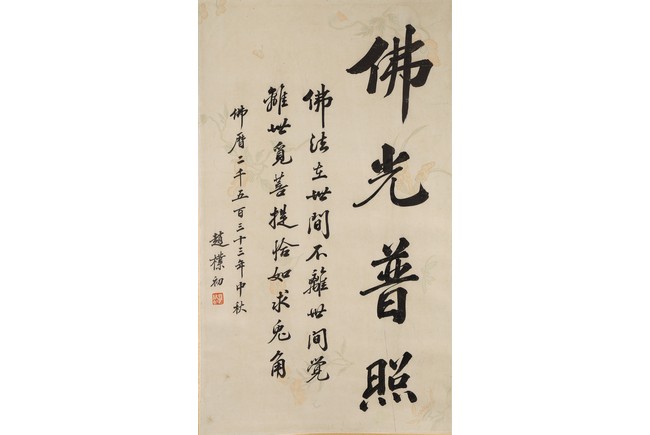 佛光普照
佛法在世間不離世间觉
離世覓菩提恰如求兎角
佛曆二千五百三十三年中秋
趙樸初